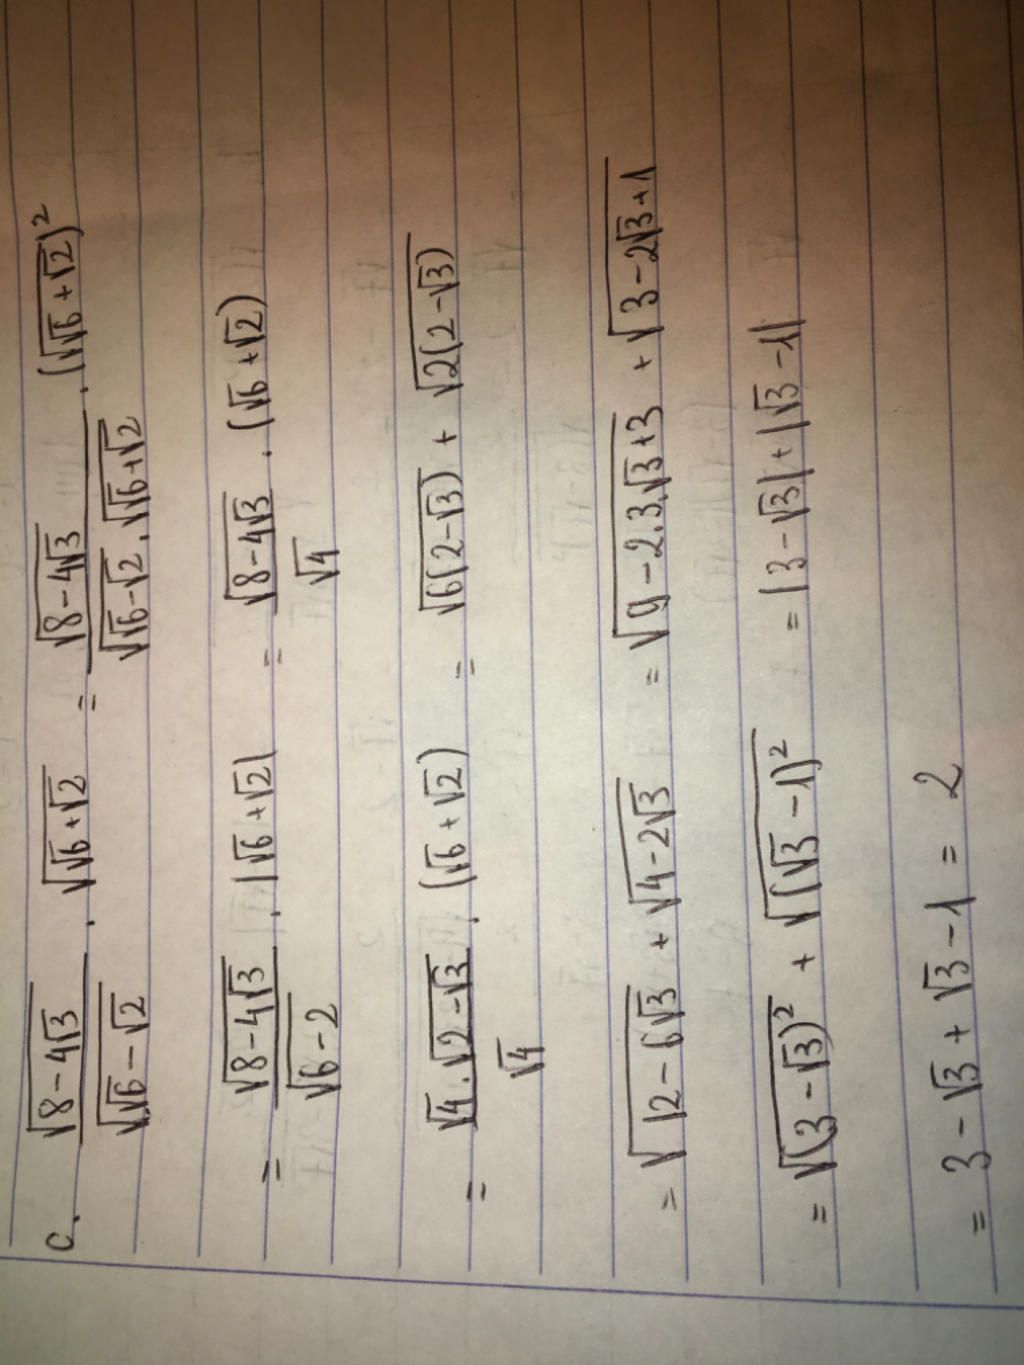 c. √(8-4√3)/√(√6-√2) . √(√6+√2) = √(8-4√3)/(√(√6-√2) . √(√6+√2)) . (√(√6+√2))²
= √(8-4√3)/√(6-2) . |√6+√2| = √(8-4√3)/√4 . (√6+√2)
= (√4 . √(2-√3))/√4 . (√6+√2) = √(6(2-√3)) + √(2(2-√3))
= √(12-6√3) + √(4-2√3) = √(9-2.3.√3+3) + √(3-2√3+1)
= √((3-√3)²) + √((√3-1)²) = |3-√3|+|√3-1|
= 3-√3+√3-1 = 2